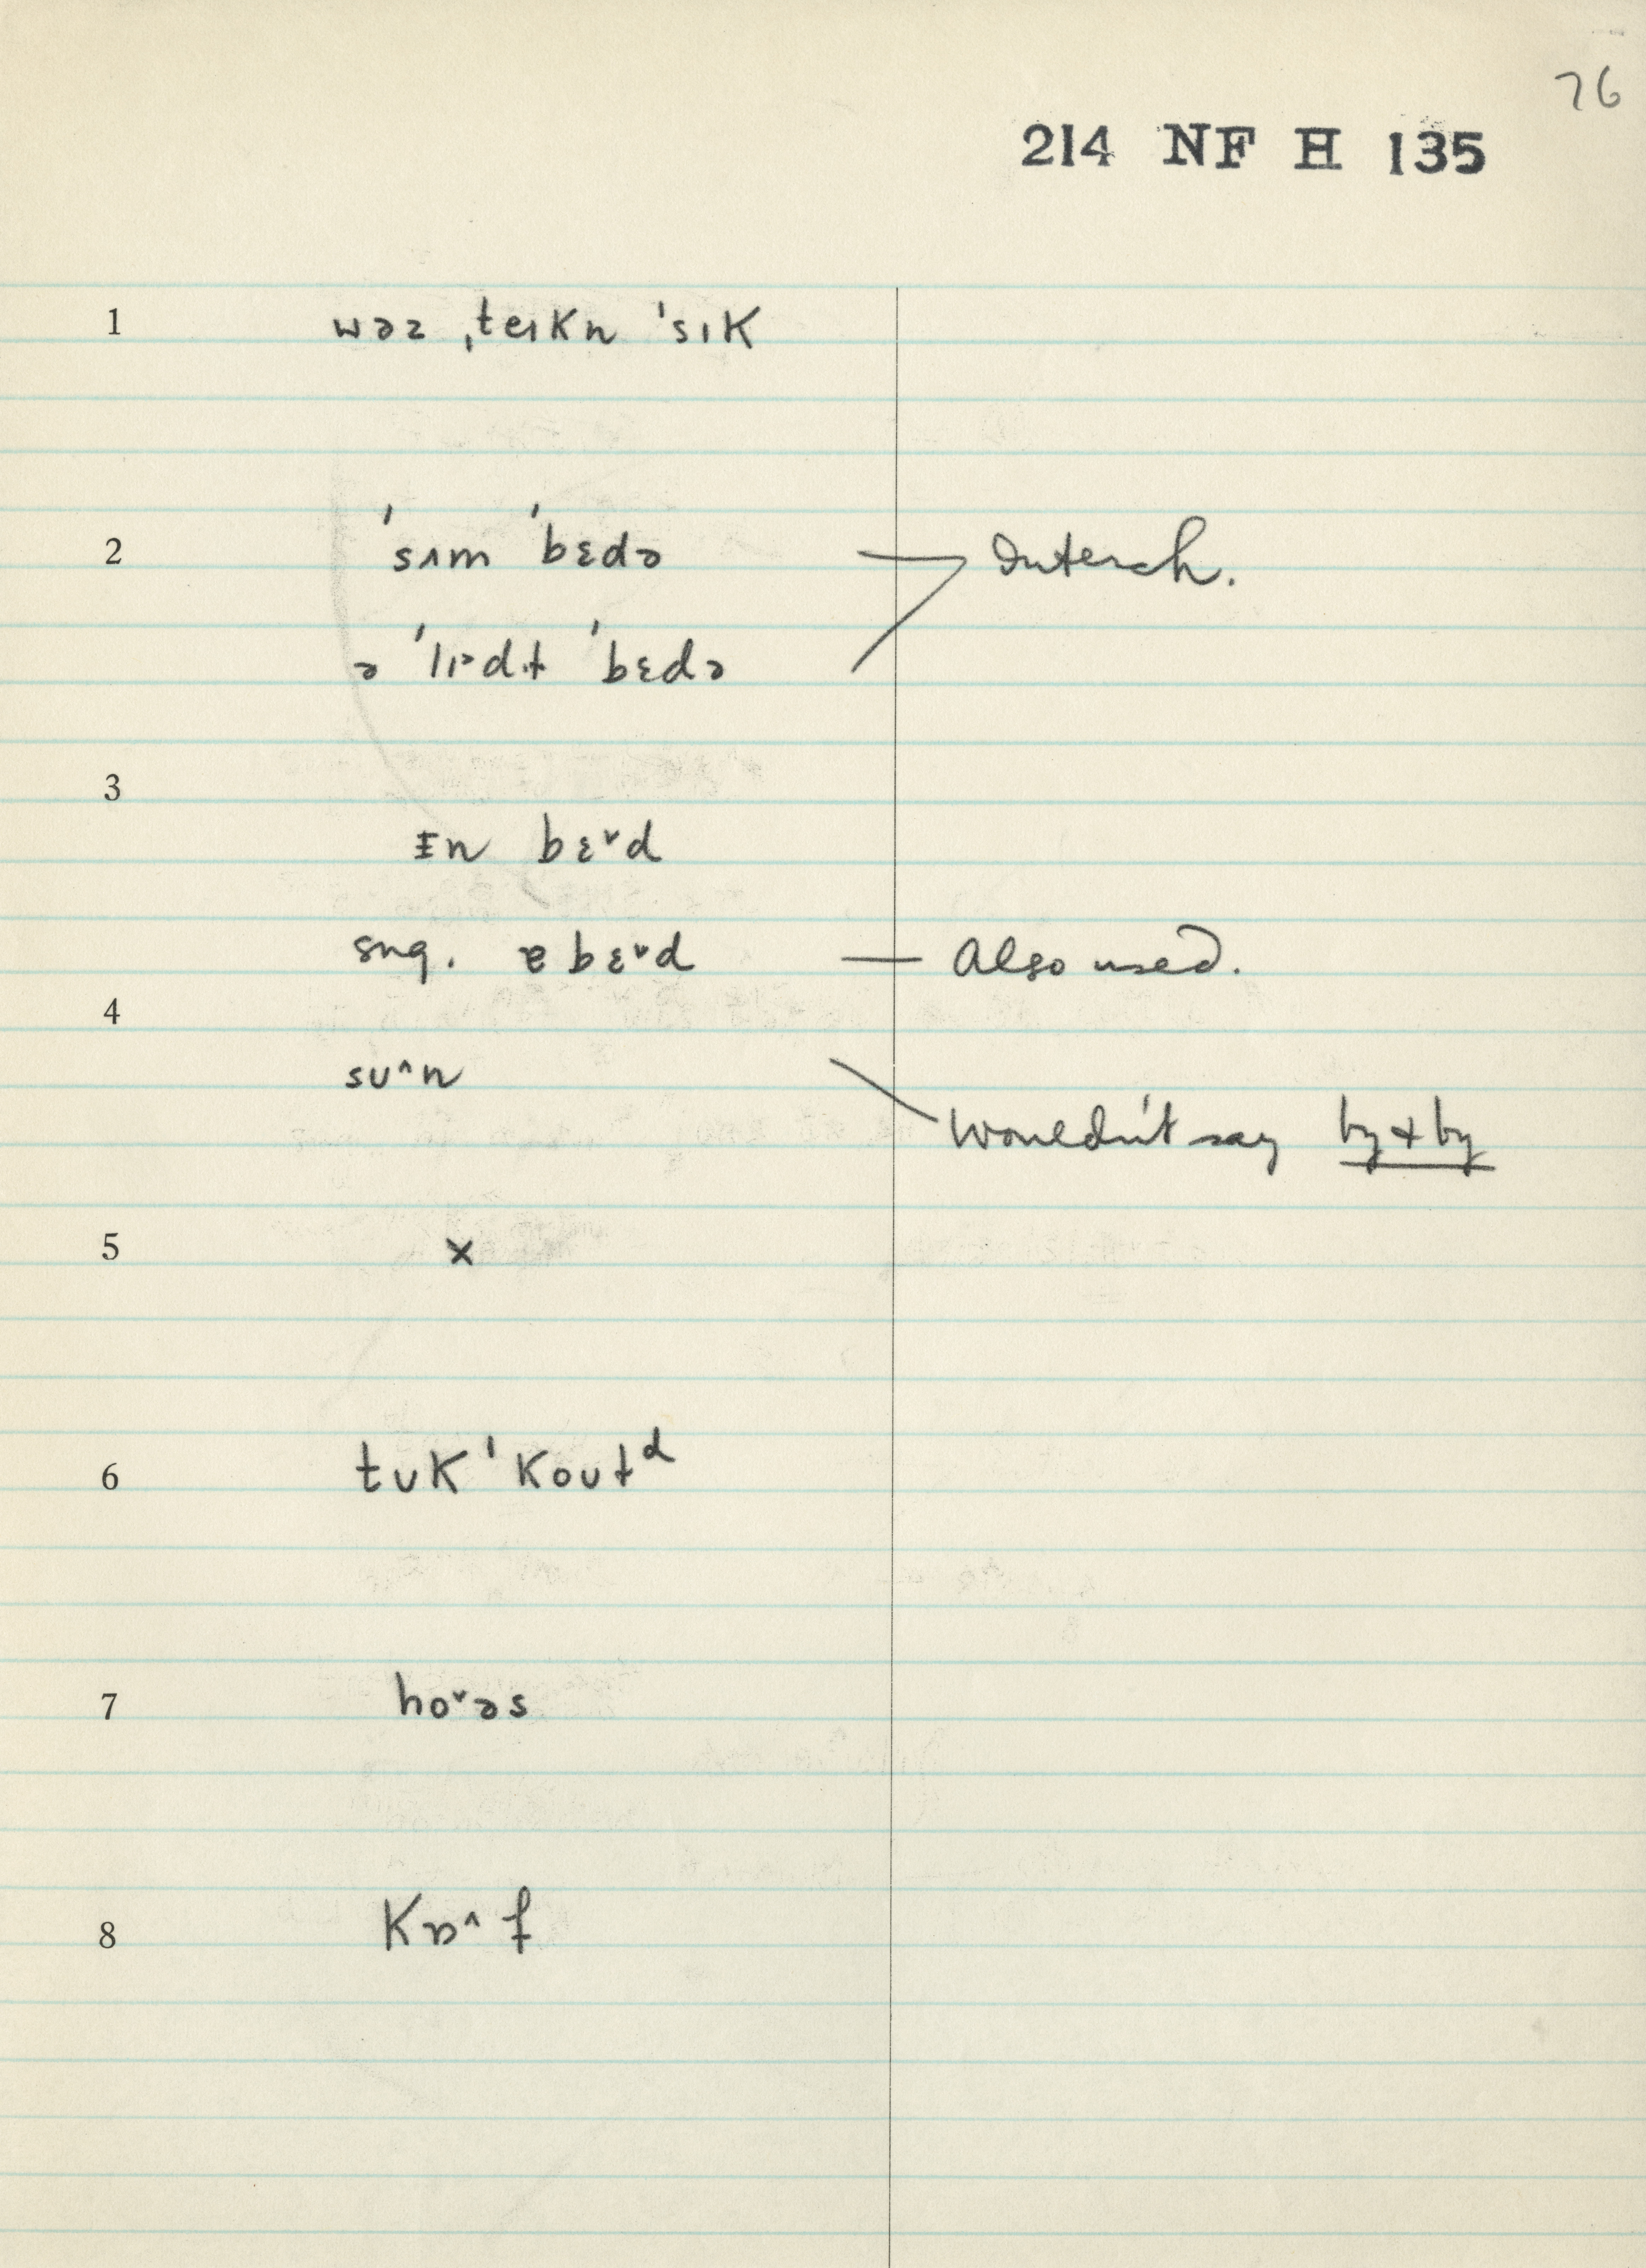 76
214 NF H 135
1 wəz ˌteɪkn ˈsɪk
2 ˈsʌm ˈbɛdə — Interch.
ə ˈlɪᵊdɫ̩ ˈbɛdə
3
ɪn bɛ˅d
sug. ɐ bɛ˅d — Also used.
4
sʊ^n Wouldn't say by + by
5 x
6 tʊk ˈkoʊɫᵈ
7 ho˅əs
8 kɒ^f